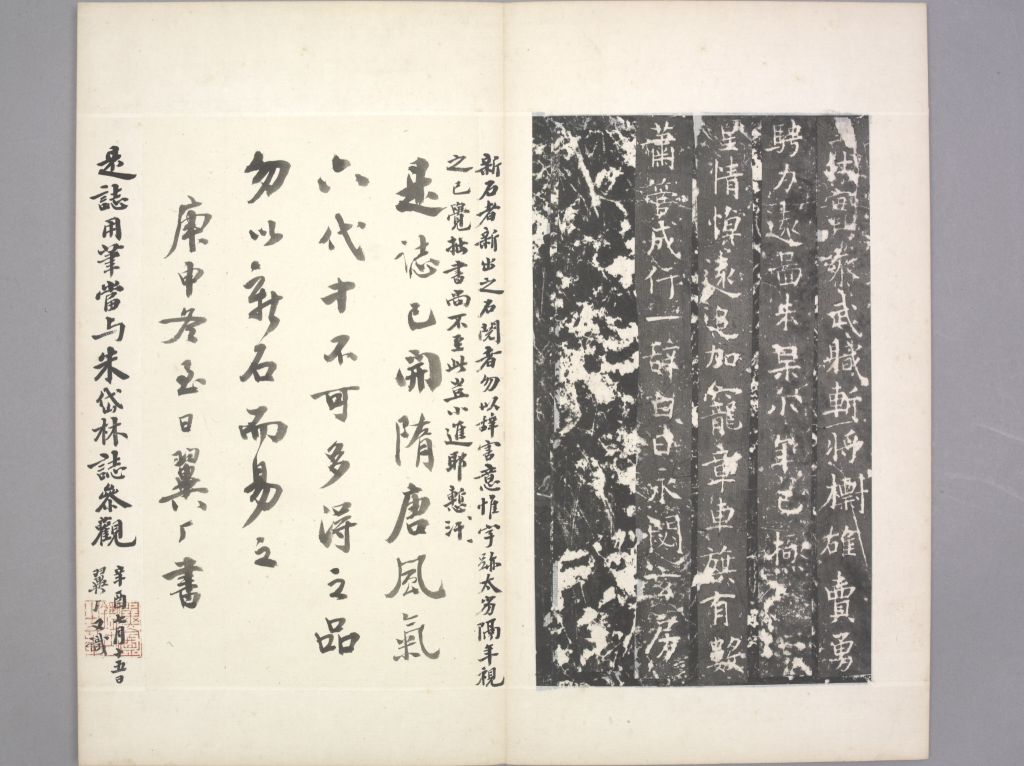 武職斬將檦雄賣勇
騁力遠啚未果 筆已極
情悼遠追加寵章車旗有
蕭管成行一辝白日永閟玄房
新石者新出之石閱者勿以辭害意惟字跡太劣隔年視
之已覺拙書尚不至此豈小進耶慙汗
是誌已開隋唐風氣
六代 不可多得之品
勿以新石而易之
庚申冬至日翼厂書
是誌用筆當与朱岱林誌參觀
辛酉七月十五日
翼厂又識